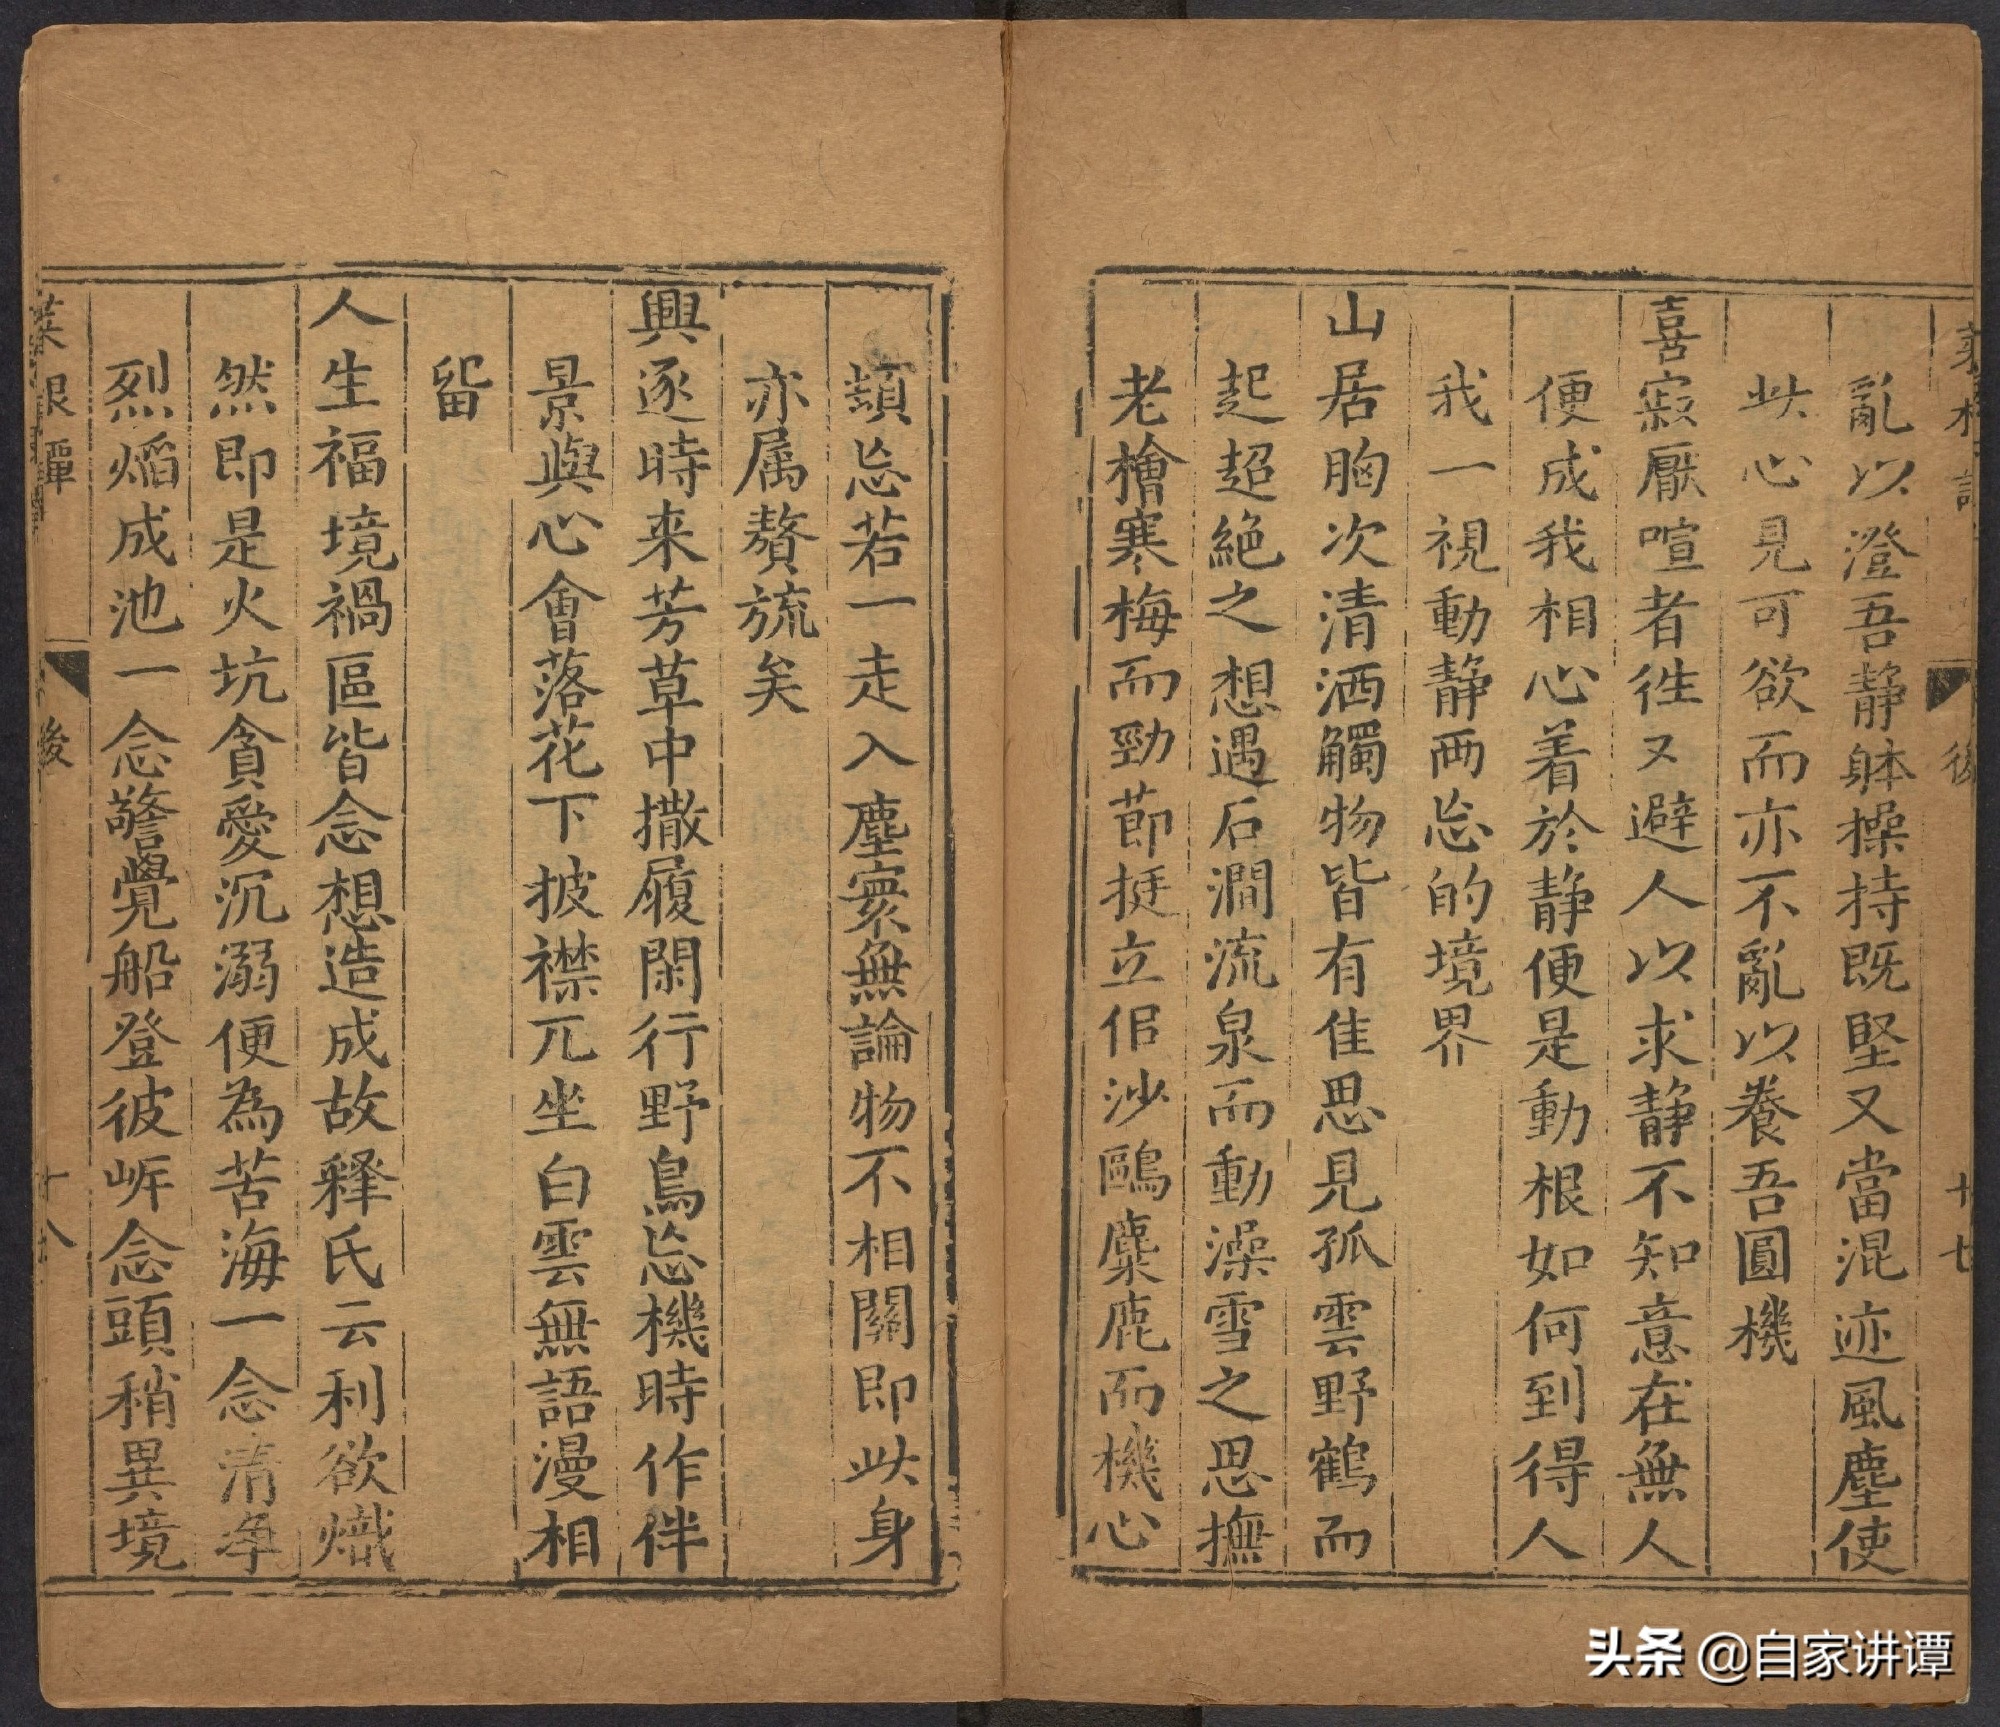 亂以澄吾静躰操持既堅又當混迹風塵使
此心見可欲而亦不亂以養吾圓機
喜寂厭喧者徃又避人以求静不知意在無人
便成我相心着於静便是動根如何到得人
我一視動静兩忘的境界
山居胸次清洒觸物皆有佳思見孤雲野鶴而
起超絶之想遇石澗流泉而動澡雪之思撫
老檜寒梅而勁莭挺立侣沙鷗麋鹿而機心
頓忘若一走入塵寰無論物不相關即此身
亦属贅旒矣
興逐時来芳草中撒履閑行野鳥忘機時作伴
景與心會落花下披襟兀坐白雲無語漫相
留
人生福境禍區皆念想造成故釋氏云利欲熾
然即是火坑貪愛沉溺便為苦海一念清净
烈熖成池一念警覺船登彼岸念頭稍異境
菜根譚
後
十八
後
十七
头条 @自家讲谭